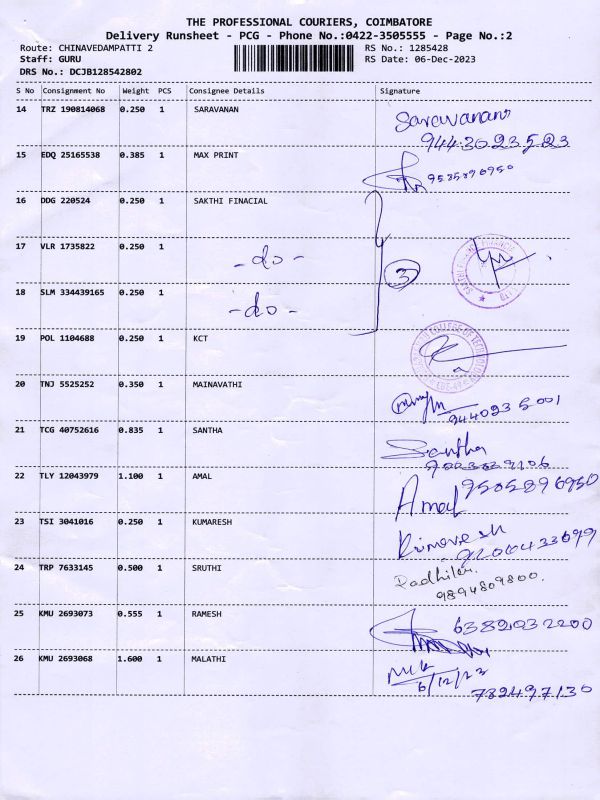 THE PROFESSIONAL COURIERS, COIMBATORE
Delivery Runsheet - PCG - Phone No.:0422-3505555 - Page No.:2
Route: CHINAVEDAMPATTI 2 RS No.: 1285428
Staff: GURU RS Date: 06-Dec-2023
DRS No.: DCJB128542802
S No Consignment No Weight PCS Consignee Details Signature
14 TRZ 190814068 0.250 1 SARAVANAN Saravanan
9443023523
15 EDQ 25165538 0.385 1 MAX PRINT 9535896950
16 DDG 220524 0.250 1 SAKTHI FINACIAL
17 VLR 1735822 0.250 1 -do- 3
18 SLM 334439165 0.250 1 -do-
19 POL 1104688 0.250 1 KCT
20 TNJ 5525252 0.350 1 MAINAVATHI
21 TCG 40752616 0.835 1 SANTHA Santha
22 TLY 12043979 1.100 1 AMAL Amal 9505896950
23 TSI 3041016 0.250 1 KUMARESH
24 TRP 7633145 0.500 1 SRUTHI
9894809800.
25 KMU 2693073 0.555 1 RAMESH 6382032200
26 KMU 2693068 1.600 1 MALATHI
6/12/23
782497130